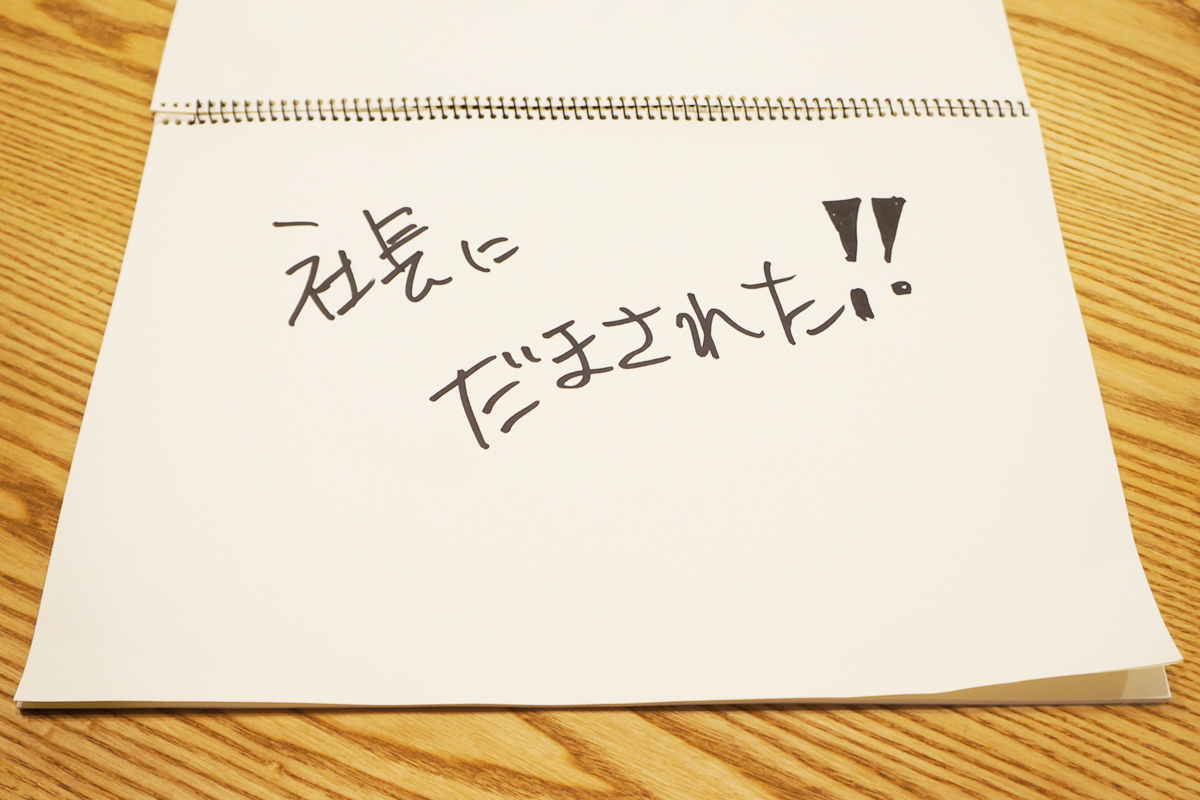 社長に
だまされた!!